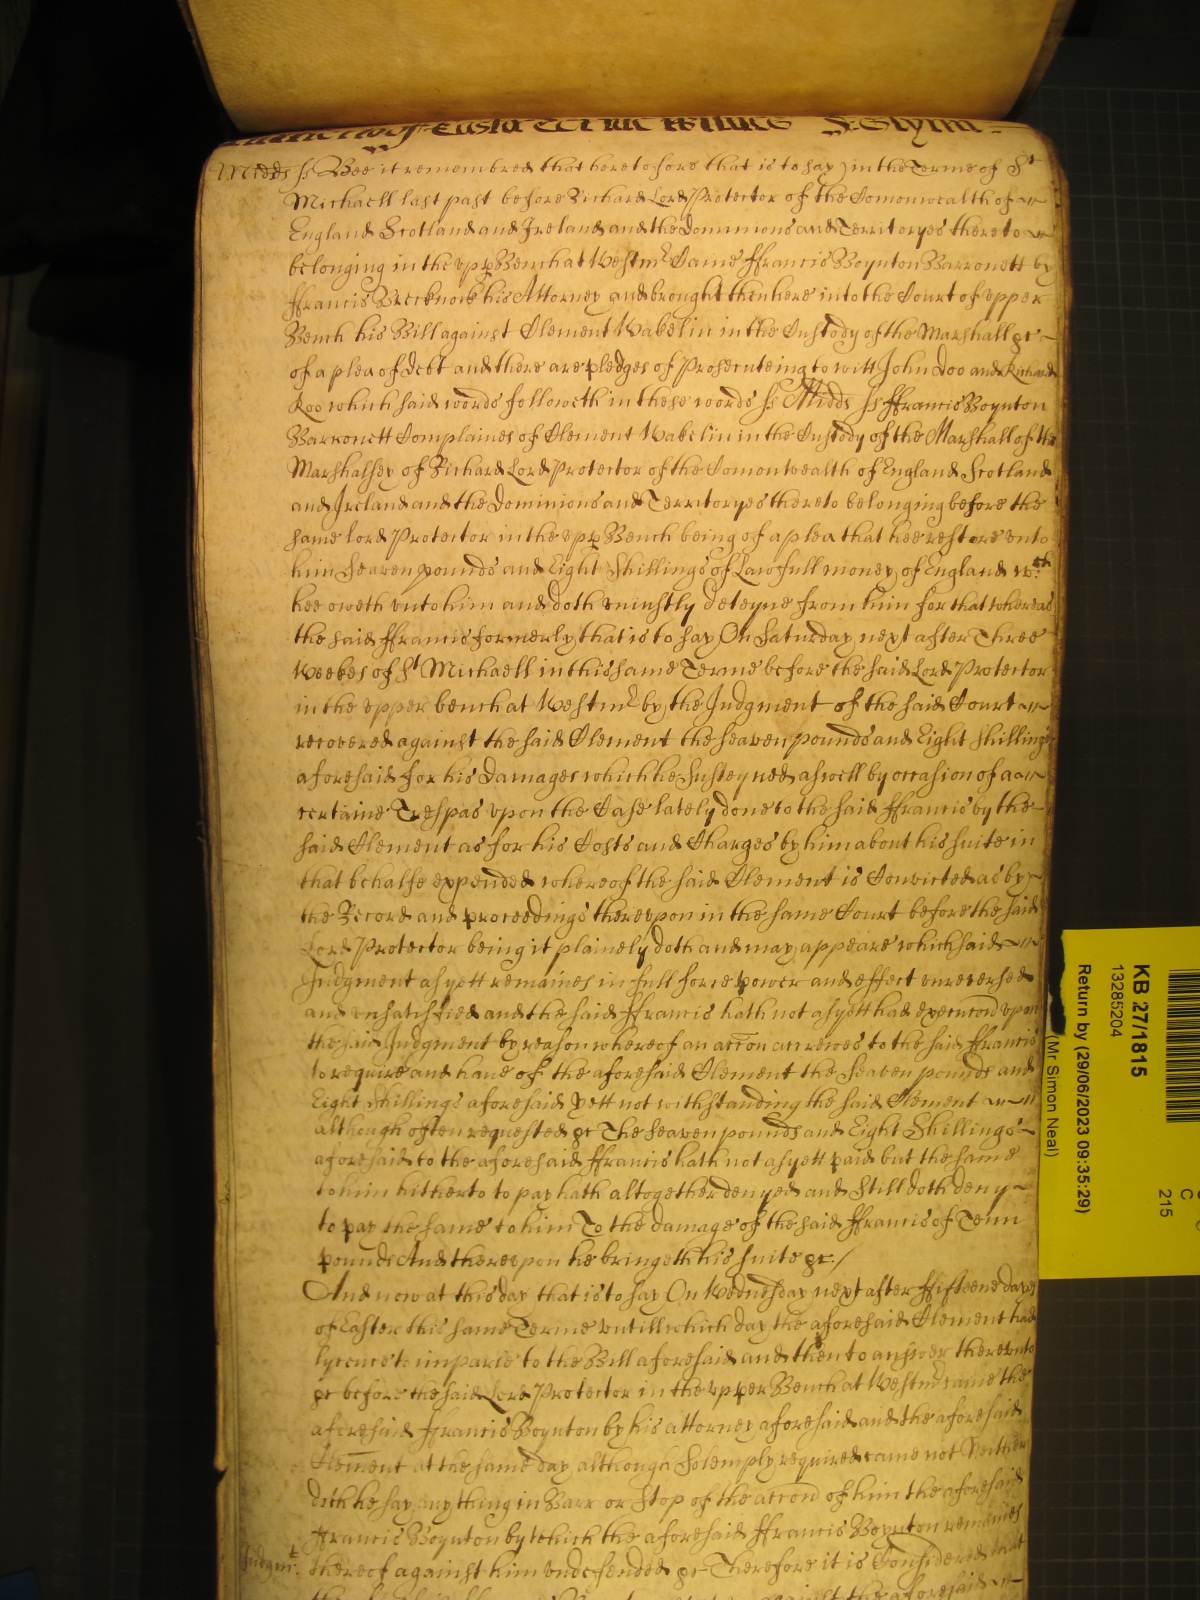 Midds ss Bee it remembred that heretofore that is to say in the Terme of St
Michaell last past before Richard Lord Protector of the Comonwealth of
England Scotland and Ireland and the Dominions and Territoryes thereto
belonging in the upp Bench at Westmr Came ffrancis Boynton Barronett by
ffrancis Brecknock his Attorney and brought then here into the Court of upper
Bench his Bill against Clement Wakelin in the Custody of the Marshall &c
of a plea of Debt and there are pledges of Prosecuteing to witt John Doo and Richard
Roo which said words followeth in these words ss Midds ss ffrancis Boynton
Barronett Complaines of Clement Wakelin in the Custody of the Marshall of the
Marshalsey of Richard Lord Protector of the Comonwealth of England Scotland
and Ireland and the Dominions and Territoryes thereto belonging before the
same lord Protector in the upp Bench being of a plea that hee restore unto
him Seaven pounds and Eight Shillings of Lawfull money of England wch
hee oweth unto him and doth uniustly deteyne from him for that whereas
the said ffrancis formerly that is to say On Saturday next after Three
Weekes of St Michaell in this same Terme before the said Lord Protector
in the upper bench at Westmr by the Judgment of the said Court
recovered against the said Clement the seaven pounds and Eight shillings
aforesaid for his Damages which he Susteyned aswell by occasion of a
certaine Trespas upon the Case lately done to the said ffrancis by the
said Clement as for his Costs and Charges by him about his suite in
that behalfe expended whereof the said Clement is Convicted as by
the Record and proceedings thereupon in the same Court before the said
Lord Protector being it plainely doth and may appeare which said
Judgment as yett remaines in full force power and effect unreversed
and unsatisfied and the said ffrancis hath not as yett had execucon upon
the said Judgment by reason whereof an accon accrewes to the said ffrancis
to require and have of the aforesaid Clement the seaven pounds and
Eight shillings aforesaid yett not withstanding the said Clement
although often requested &c The Seaven pounds and Eight Shillings
aforesaid to the aforesaid ffrancis hath not as yett paid but the same
to him hitherto to pay hath altogether denyed and Still doth deny
to pay the same to him To the damage of the said ffrancis of Tenn
pounds And thereupon he bringeth his suite &c./
And now at this day that is to say On Wednesday next after ffifteene dayes
of Easter this same Terme untill which day the aforesaid Clement had
lycence to imparle to the Bill aforesaid and then to answer thereunto
&c before the said Lord Protector in the upper Bench at Westmr came the
aforesaid ffrancis Boynton by his attorney aforesaid and the aforesaid
Clement at the same day although Solemply required came not Neither
doth he say any thing in Barr or Stop of the accon of him the aforesaid
ffrancis Boynton by which the aforesaid ffrancis Boynton remaines
Judgmt thereof against him undefended &c Therefore it is Considered that
against the aforesaid
KB 27/1815
13285204
Return by (29/06/2023 09:35:29)
(Mr Simon Neal)
C
215